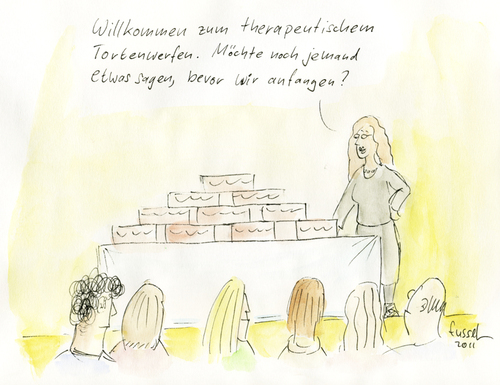 Willkommen zum therapeutischem
Tortenwerfen. Möchte noch jemand
etwas sagen, bevor wir anfangen?
fussel
2011